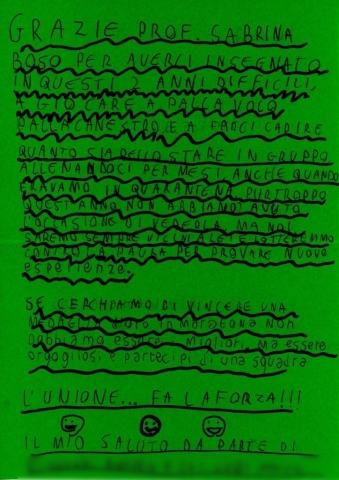 GRAZIE PROF. SABRINA
BOSO PER AVERCI INSEGNATO
IN QUESTI 2 ANNI DIFFICILI,
A GIOCARE A PALLAVOLO
PALLACANESTRO E A FARCI CAPIRE
QUANTO SIA BELLO STARE IN GRUPPO
ALLENANDOCI PER MESI, ANCHE QUANDO
ERAVAMO IN QUARANTENA PURTROPPO
QUEST'ANNO NON ABBIAMO AVUTO
L'OCCASIONE DI VEDERLA MA NOI
SAREMO SEMPRE VICINI A LEI E LOTTEREMO
CONTRO LA PAURA PER PROVARE NUOVE
esperienze.
SE CERCHIAMO DI VINCERE UNA
MEDAGLIA D'oro in maratona non
dobbiamo essere migliori, ma essere
orgogliosi e partecipi di una squadra
L'UNIONE... FA LA FORZA!!!
IL MIO SALUTO DA PARTE DI